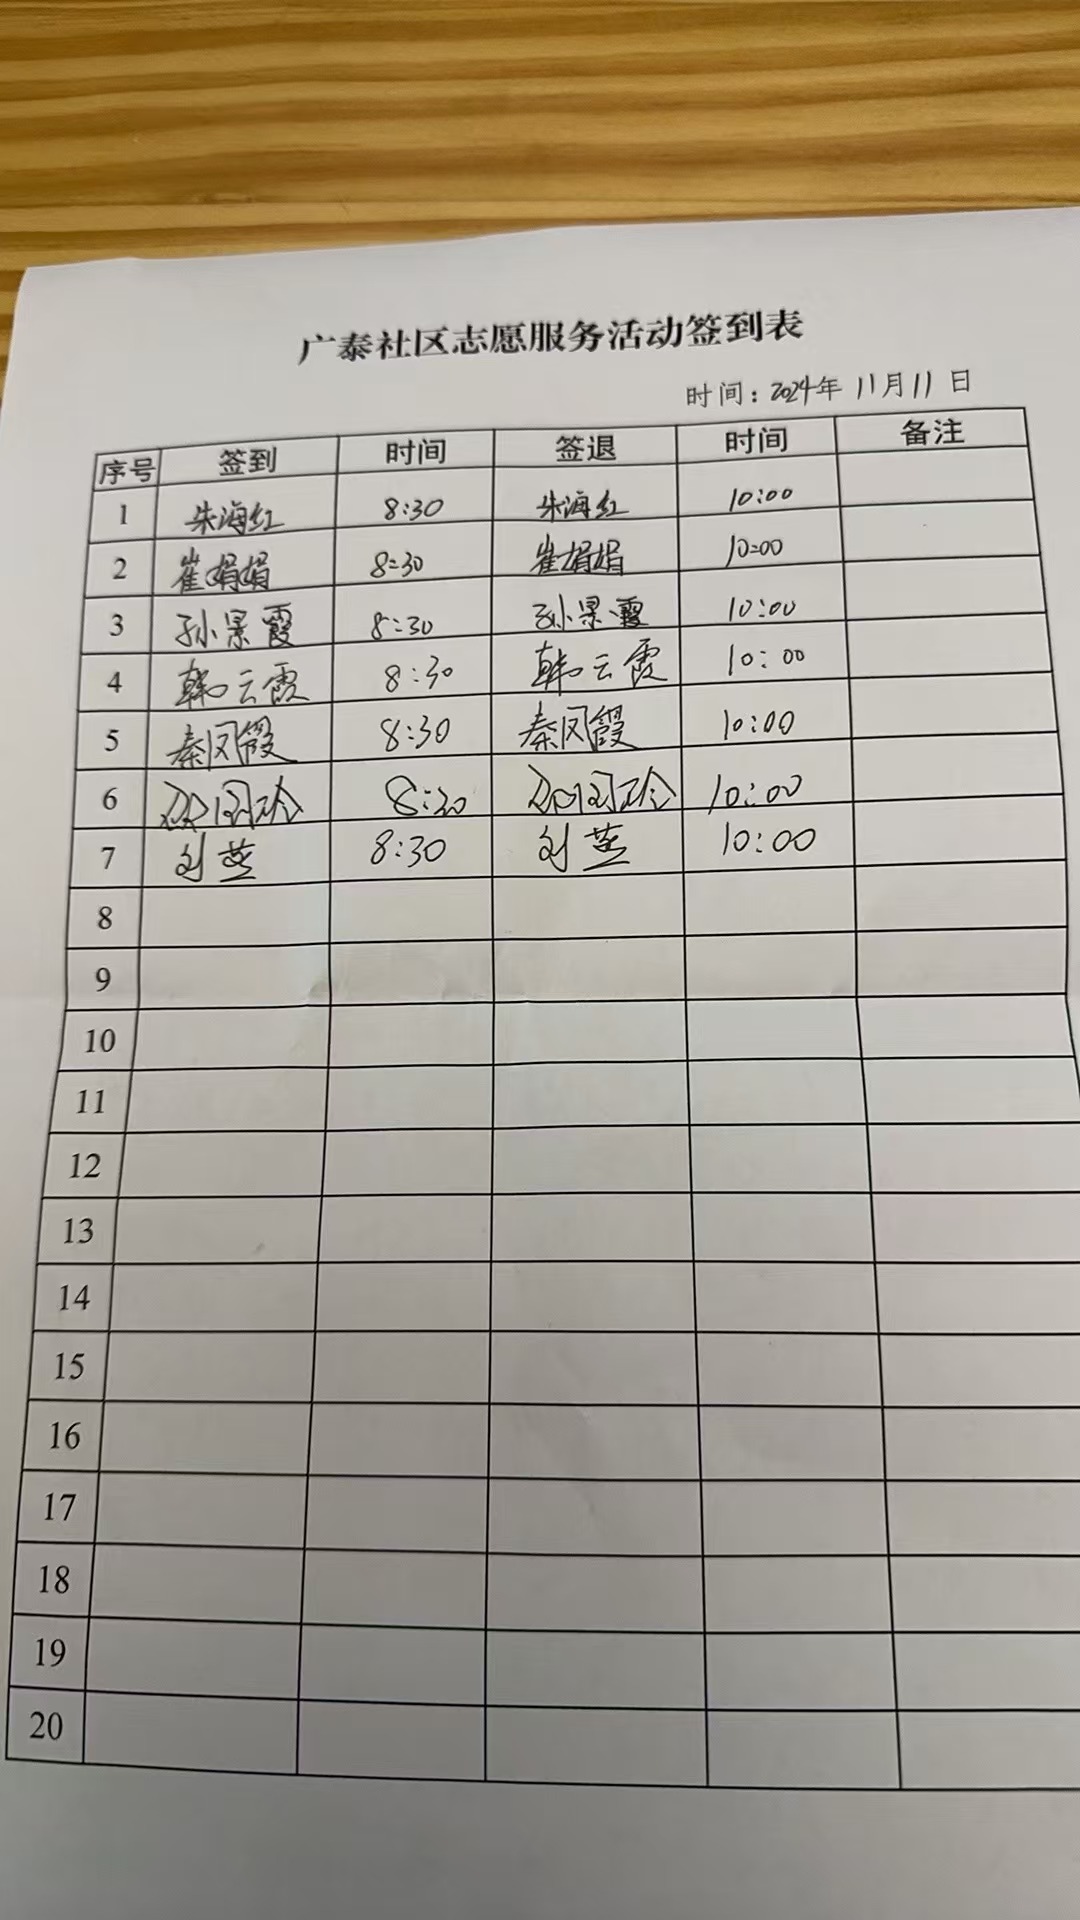 广泰社区志愿服务活动签到表
时间：2024年 11月11日
序号 签到 时间 签退 时间 备注
1 朱海红 8:30 朱海红 10:00
2 崔娟娟 8:30 崔娟娟 10:00
3 孙景霞 8:30 孙景霞 10:00
4 韩云霞 8:30 韩云霞 10:00
5 秦凤霞 8:30 秦凤霞 10:00
6 8:30 10:00
7 刘燕 8:30 刘燕 10:00
8
9
10
11
12
13
14
15
16
17
18
19
20